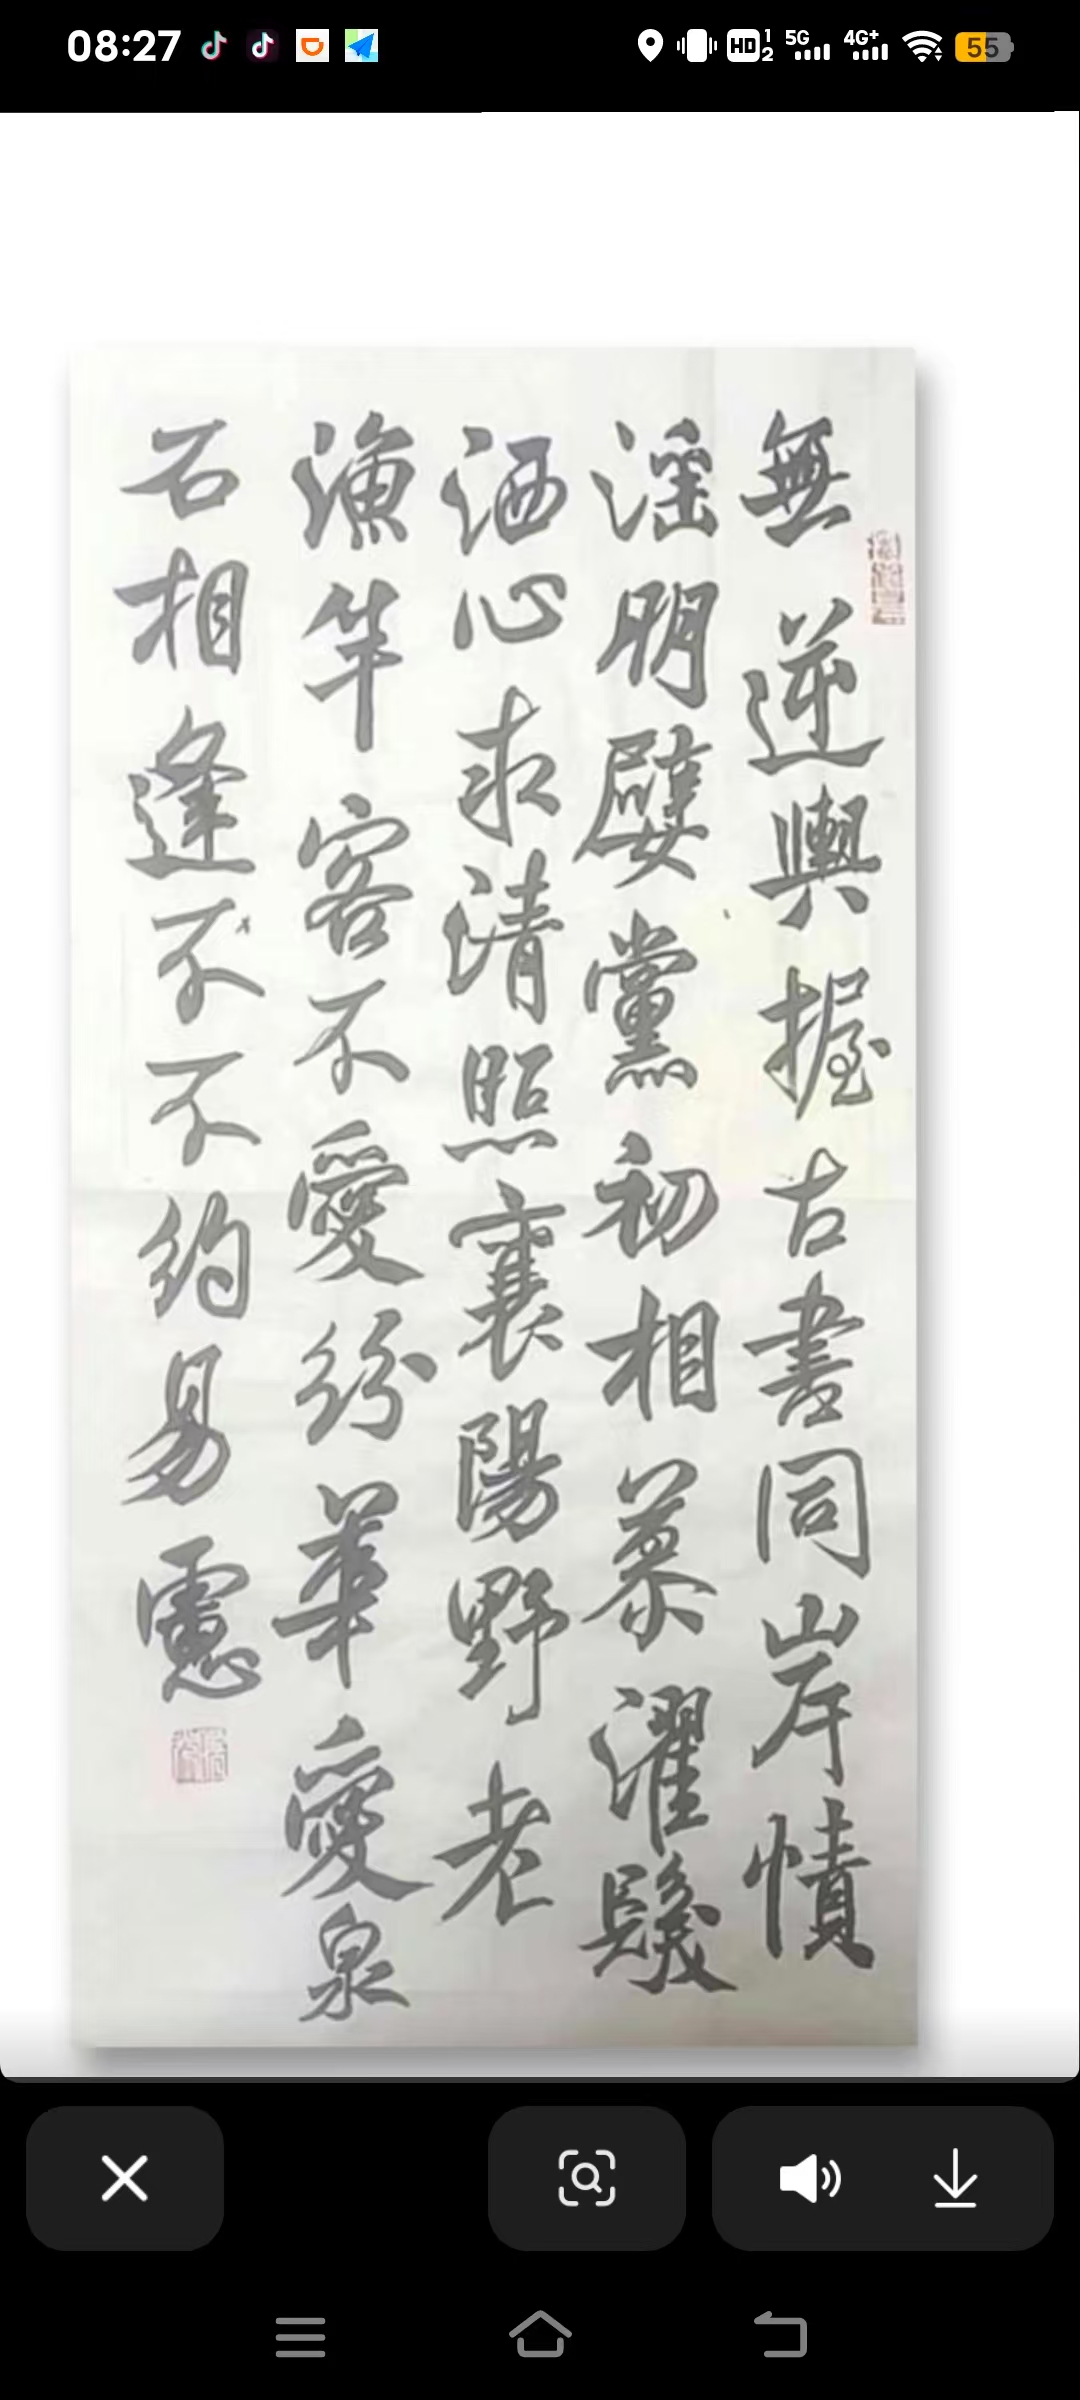 08:27
HD 1 2 5G 4G+ 55
無逆與握古書同岸幘
淫朋嬖黨初相慕濯髮
洒心求清照襄陽野老
漁竿客不愛紛華愛泉
石相逢不不約易